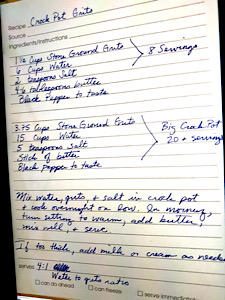 Recipe Crock Pot Grits
Source
Ingredients/Instructions
1½ Cups Stone Ground Grits
6 Cups Water
2 teaspoons Salt
4-6 tablespoons butter
Black Pepper to taste
8 Servings
3.75 Cups Stone Ground Grits
15 Cups Water
5 teaspoons salt
Stick of butter
Black Pepper to taste
Big Crock Pot
20+ servings
Mix water, grits, & salt in crock pot
& cook overnight on low. In morning,
turn setting to warm, add butter,
mix well, & serve.
If too thick, add milk or cream as needed
serves 4:1
Water to grits ratio
can do ahead
can freeze
serve immediately